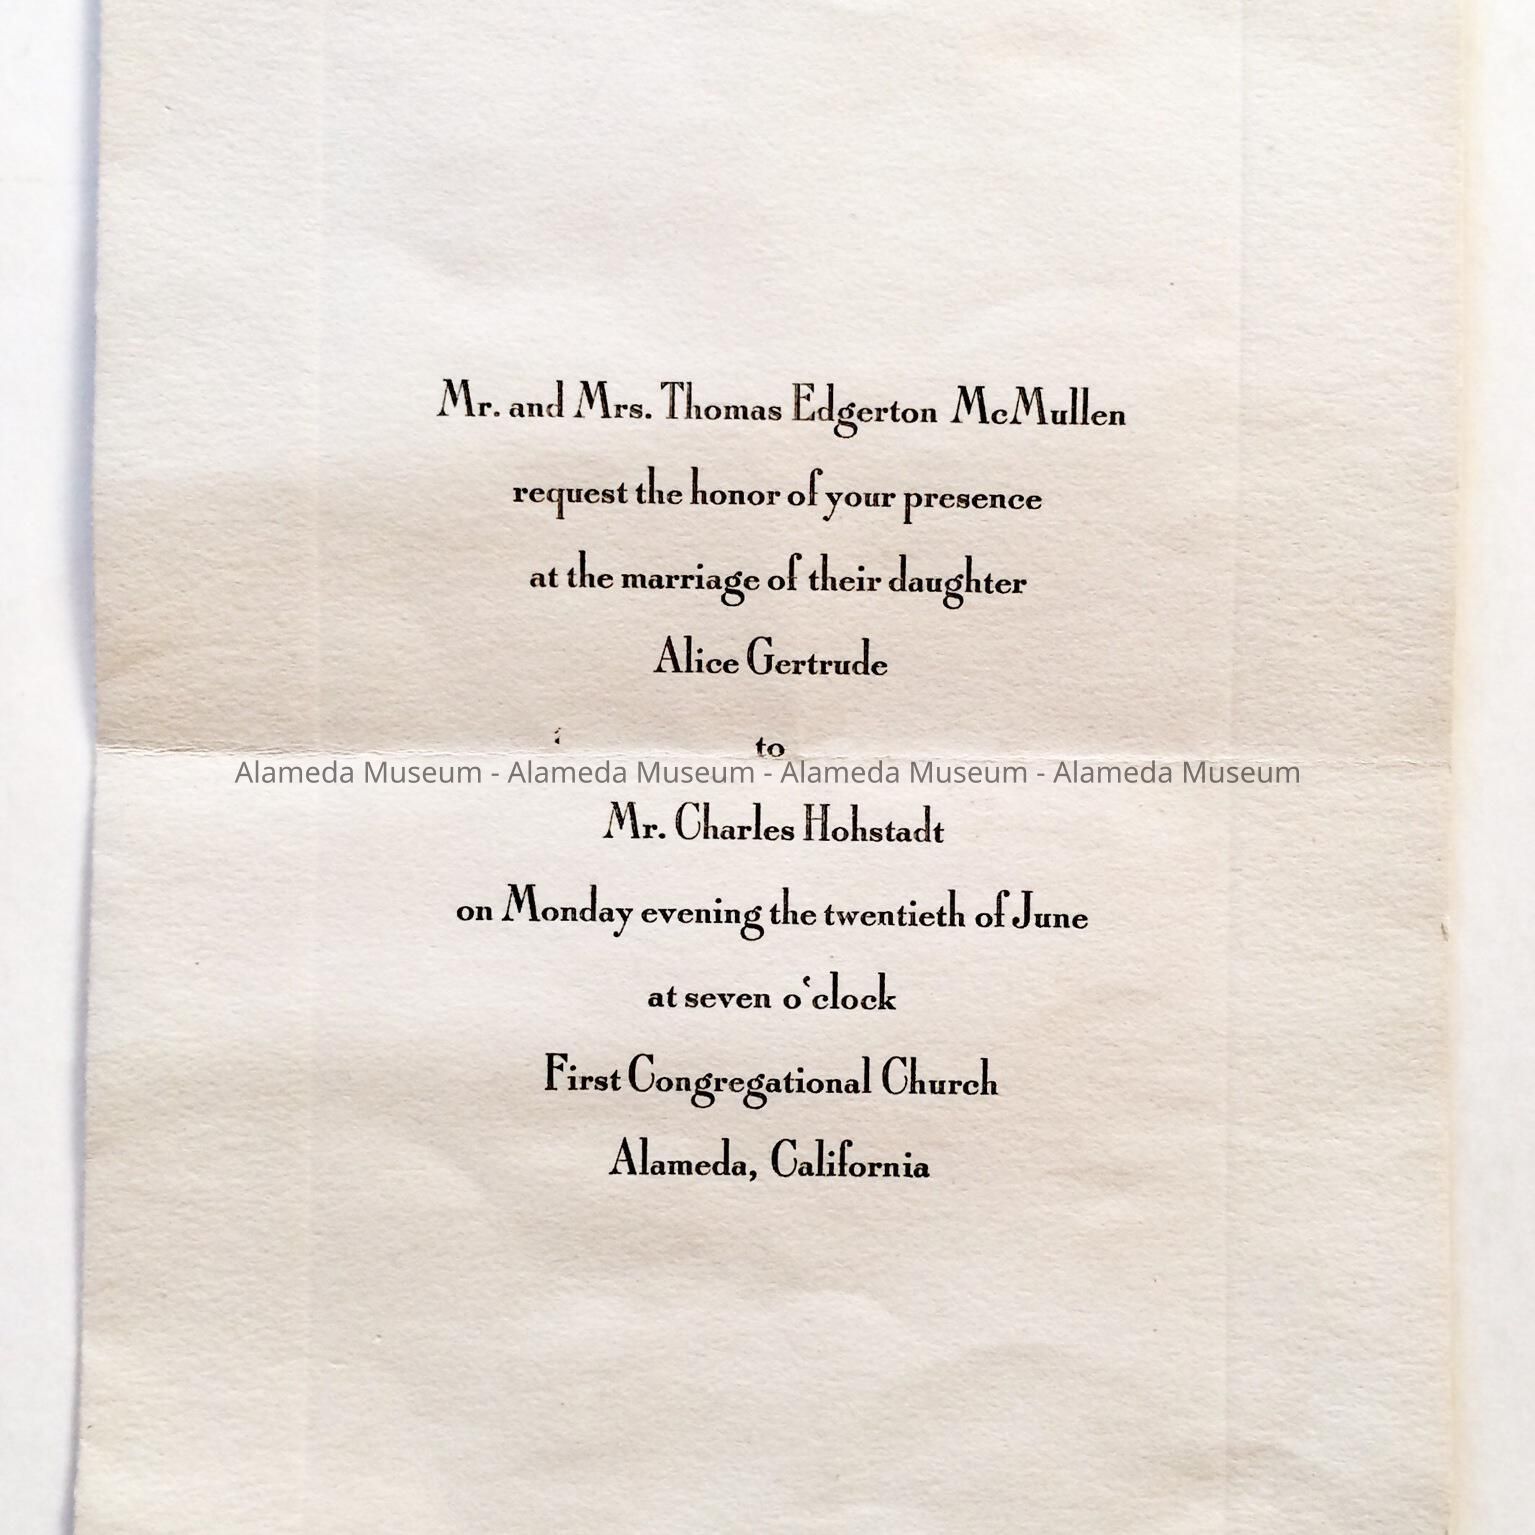 Mr. and Mrs. Thomas Edgerton McMullen
request the honor of your presence
at the marriage of their daughter
Alice Gertrude
to
Alameda Museum - Alameda Museum - Alameda Museum - Alameda Museum
Mr. Charles Hohstadt
on Monday evening the twentieth of June
at seven o‘clock
First Congregational Church
Alameda, California